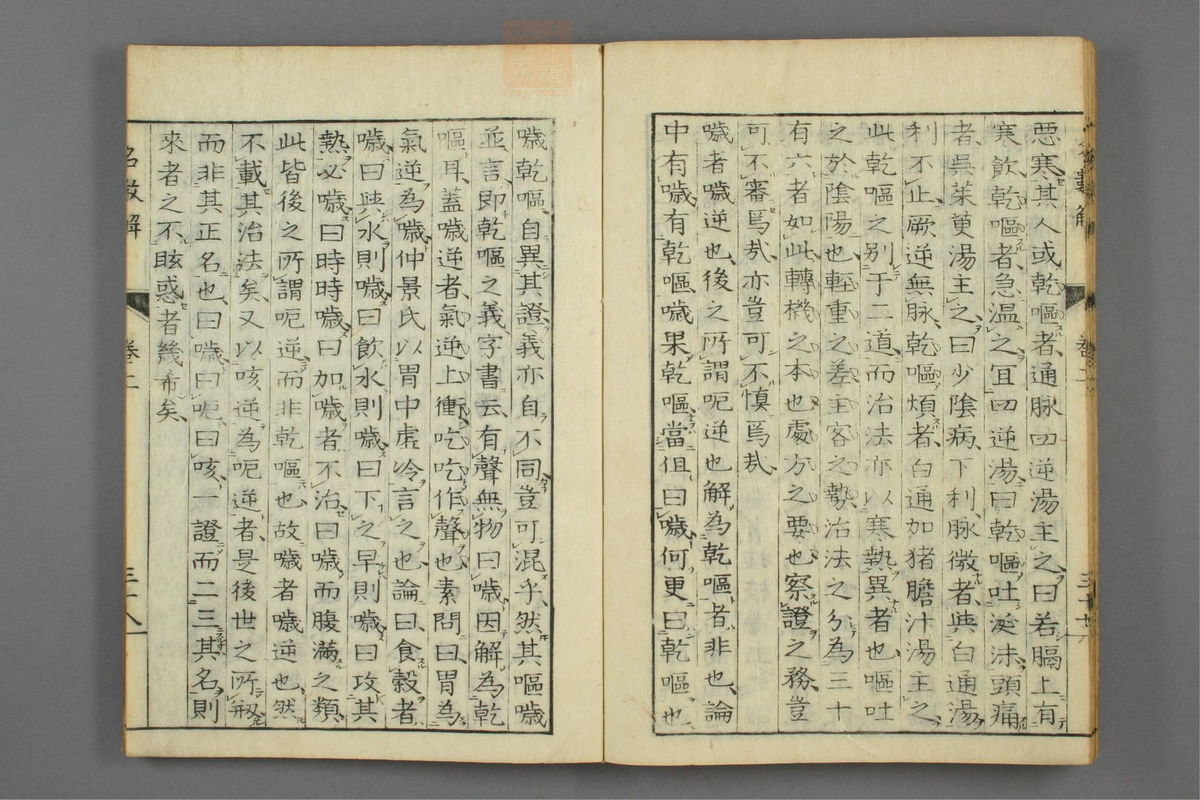 惡寒其人或乾嘔者通脉四逆湯主之曰若膈上有
寒飲乾嘔者急溫之宜四逆湯曰乾嘔吐涎沫頭痛
者吳茱萸湯主之曰少陰病下利脉微者與白通湯
利不止厥逆無脉乾嘔煩者白通加猪膽汁湯主之
此乾嘔之别于二道而治法亦以寒熱異者也嘔吐
之於陰陽也輕重之差主客之勢治法之分為三十
有六者如此轉機之本也處方之要也察證之務豈
可不審焉㢤亦豈可不慎焉㢤
噦者噦逆也後之所謂呃逆也解為乾嘔者非也論
中有噦有乾嘔噦果乾嘔當但曰噦何更曰乾嘔也
噦乾嘔自異其證義亦自不同豈可混乎然其嘔噦
並言即乾嘔之義字書云有聲無物曰噦因解為乾
嘔耳蓋噦逆者氣逆上衝吃吃作聲也素問曰胃為
氣逆為噦仲景氏以胃中虛冷言之也論曰食穀者
噦曰與水則噦曰飲水則噦曰下之早則噦曰攻其
熱必噦曰時時噦曰加噦者不治曰噦而腹滿之類
此皆後之所謂呃逆而非乾嘔也故噦者噦逆也然
不載其治法矣又以咳逆為呃逆者是後世之所
而非其正名也曰噦曰呃曰咳一證而二三其名則
來者之不眩惑者幾希矣
名數解
卷二